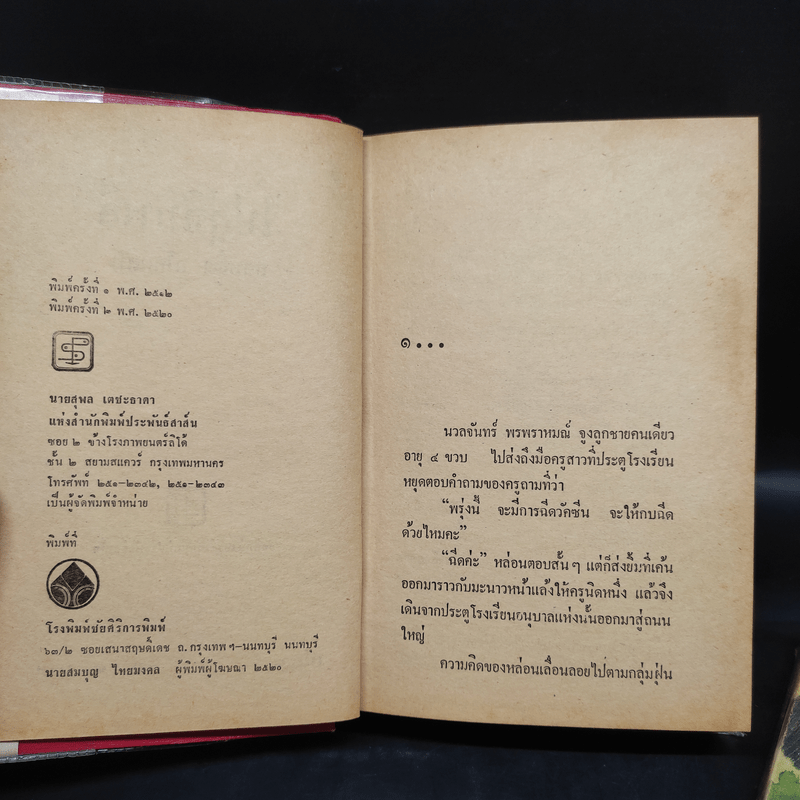 พิมพ์ครั้งที่ ๑ พ.ศ. ๒๕๑๒
พิมพ์ครั้งที่ ๒ พ.ศ. ๒๕๒๐
นายสุพล เตชะธาดา
แห่งสำนักพิมพ์ประพันธ์สาส์น
ซอย ๒ ข้างโรงภาพยนตร์ลิโด้
ชั้น ๒ สยามสแควร์ กรุงเทพมหานคร
โทรศัพท์ ๒๕๑-๒๓๔๒, ๒๕๑-๒๓๔๓
เป็นผู้จัดพิมพ์จำหน่าย
พิมพ์ที่
โรงพิมพ์ชัยศิริการพิมพ์
๖๓/๒ ซอยเสนาสฤษดิ์เดช ถ.กรุงเทพฯ-นนทบุรี นนทบุรี
นายสมบุญ ไทยมงคล ผู้พิมพ์ผู้โฆษณา ๒๕๒๐
๑...
นวลจันทร์ พรพราหมณ์ จูงลูกชายคนเดียว
อายุ ๔ ขวบ ไปส่งถึงมือครูสาวที่ประตูโรงเรียน
หยุดตอบคำถามของครูถามที่ว่า
“พรุ่งนี้ จะมีการฉีดวัคซีน จะให้กบฉีด
ด้วยไหมคะ”
“ฉีดค่ะ” หล่อนตอบสั้นๆ แต่ก็ส่งยิ้มที่เค้น
ออกมาราวกับมะนาวหน้าแล้งให้ครูนิดหนึ่ง แล้วจึง
เดินจากประตูโรงเรียนอนุบาลแห่งนั้นออกมาสู่ถนน
ใหญ่
ความคิดของหล่อนเลื่อนลอยไปตามกลุ่มฝุ่น